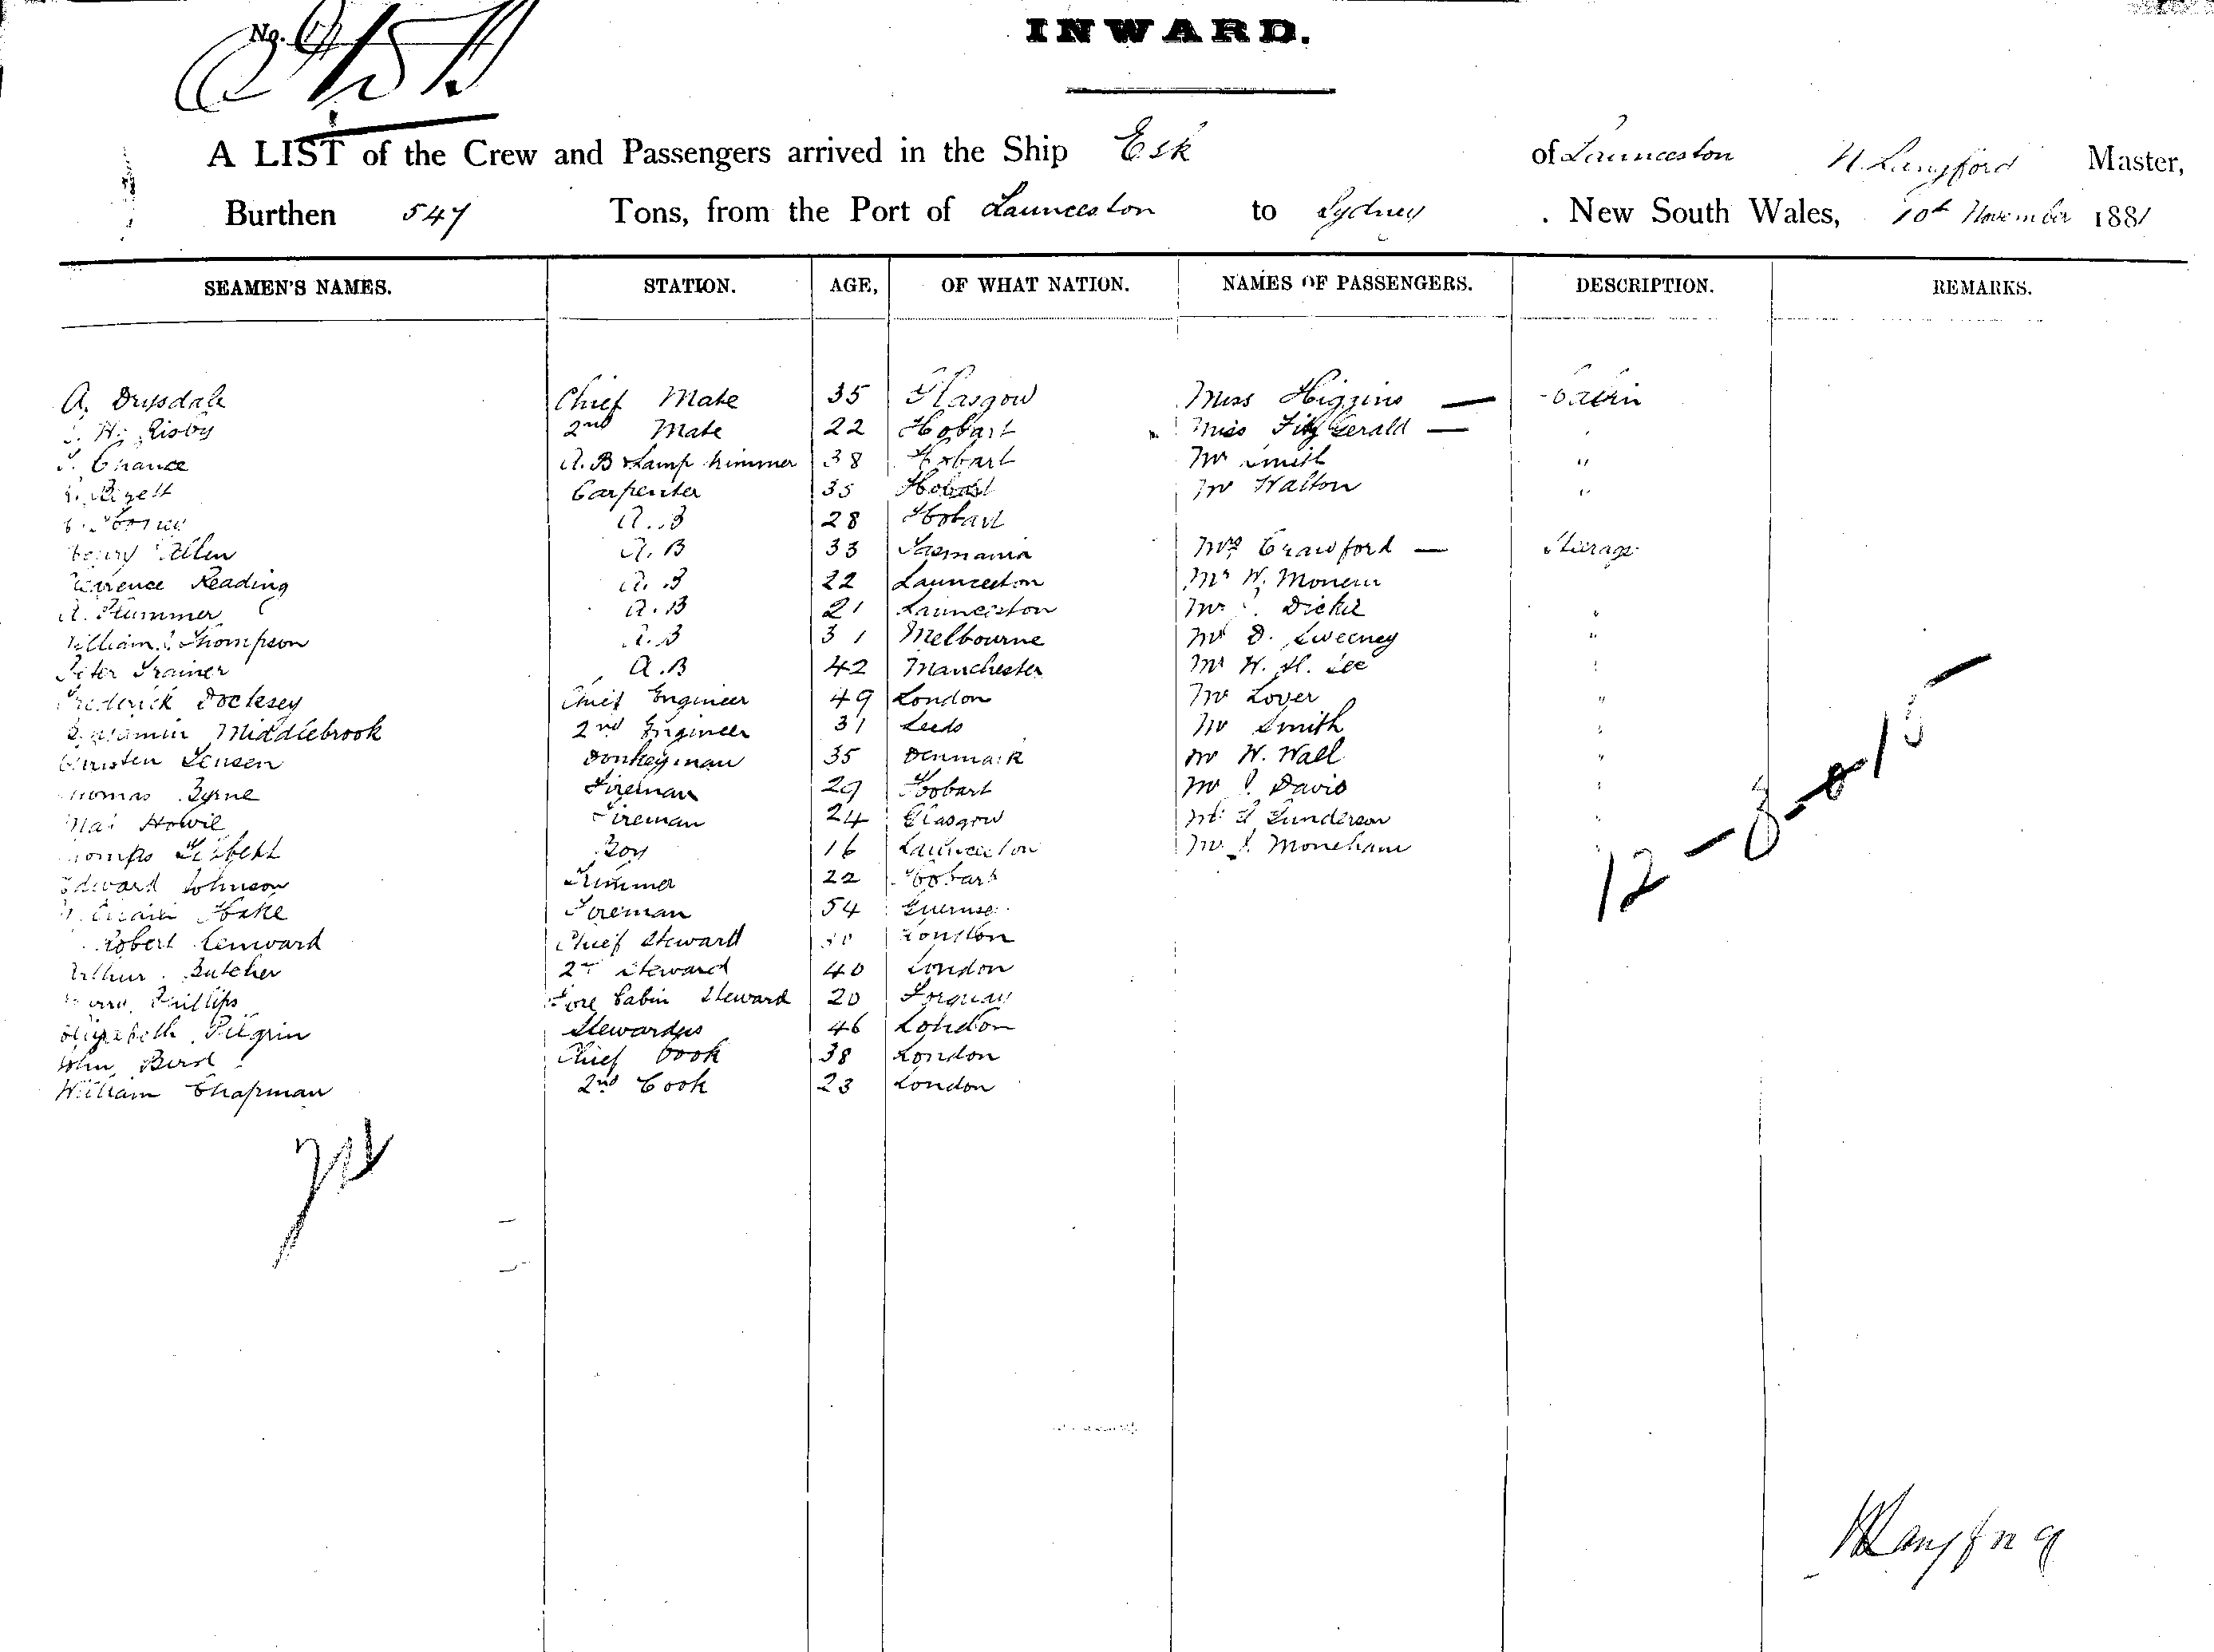 No.
INWARD.
A LIST of the Crew and Passengers arrived in the Ship Esk of Launceston Langford Master,
Burthen 547 Tons, from the Port of Launceston to Sydney . New South Wales, 10th November 1881
SEAMEN'S NAMES. STATION. AGE, OF WHAT NATION. NAMES OF PASSENGERS. DESCRIPTION. REMARKS.
A. Drysdale Chief Mate 35 Glasgow Miss Higgins — Cabin
H. Risby 2nd Mate 22 Hobart Miss Fitz Gerald —
Chance A.B & Lamp trimmer 38 Hobart Mr Smith "
Carpenter 35 Hobart Mr Walton "
A.B 28 Hobart
Henry Allen A.B 33 Tasmania Mrs Crawford — Steerage
Clarence Reading A.B 22 Launceston Mr W.
A. Plummer A.B 21 Launceston Mr Dickie "
William Thompson A.B 31 Melbourne Mr D. Sweeney "
Peter Trainer A.B 42 Manchester Mr W. H. Lee "
Frederick Docksey Chief Engineer 49 London Mr Lover "
Benjamin Middlebrook 2nd Engineer 31 Leeds Mr Smith "
Christen Jensen Donkeyman 35 Denmark Mr W. Wall "
Thomas Byrne Fireman 29 Hobart Mr Davis "
Howie Fireman 24 Glasgow Mr Gunderson "
Boy 16 Launceston Mr Moneham "
Edward Johnson Trimmer 22 Hobart
William Hake Foreman 54 Guernsey
Robert Chief Steward London
Arthur Butcher 2nd Steward 40 London
Phillips Fore Cabin Steward 20 Torquay
Elizabeth Pilgrin Stewardess 46 London
John Bird Chief Cook 38 London
William Chapman 2nd Cook 23 London
12-3-0/15